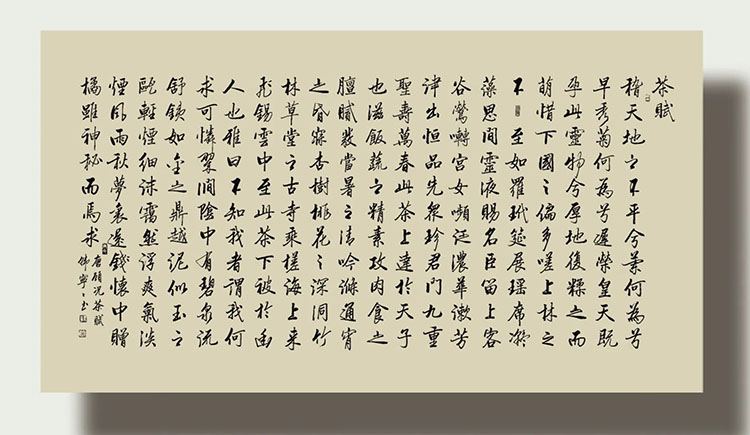 茶賦
稽天地之不平兮蘭何為兮
早秀菊何為兮遲榮皇天既
孕此靈物兮厚地復糅之而
萌惜下國之偏多嗟上林之
不至如羅玳筵展瑤席凝
藻思間靈液賜名臣留上客
谷鶯囀宮女嚬泛濃華漱芳
津出恒品先眾珍君門九重
聖壽萬春此茶上達於天子
也滋飯蔬之精素攻肉食之
膻膩發當暑之清吟滌通宵
之昏寐杏樹桃花之深洞竹
林草堂之古寺乘槎海上來
飛錫雲中至此茶下被於幽
人也雅曰不知我者謂我何
求可憐翠澗陰中有碧泉流
舒鐵如金之鼎越泥似玉之
甌輕煙細沫靄然浮爽氣淡
煙風雨秋夢裏還錢懷中贈
橘雖神秘而焉求
唐顧況茶賦